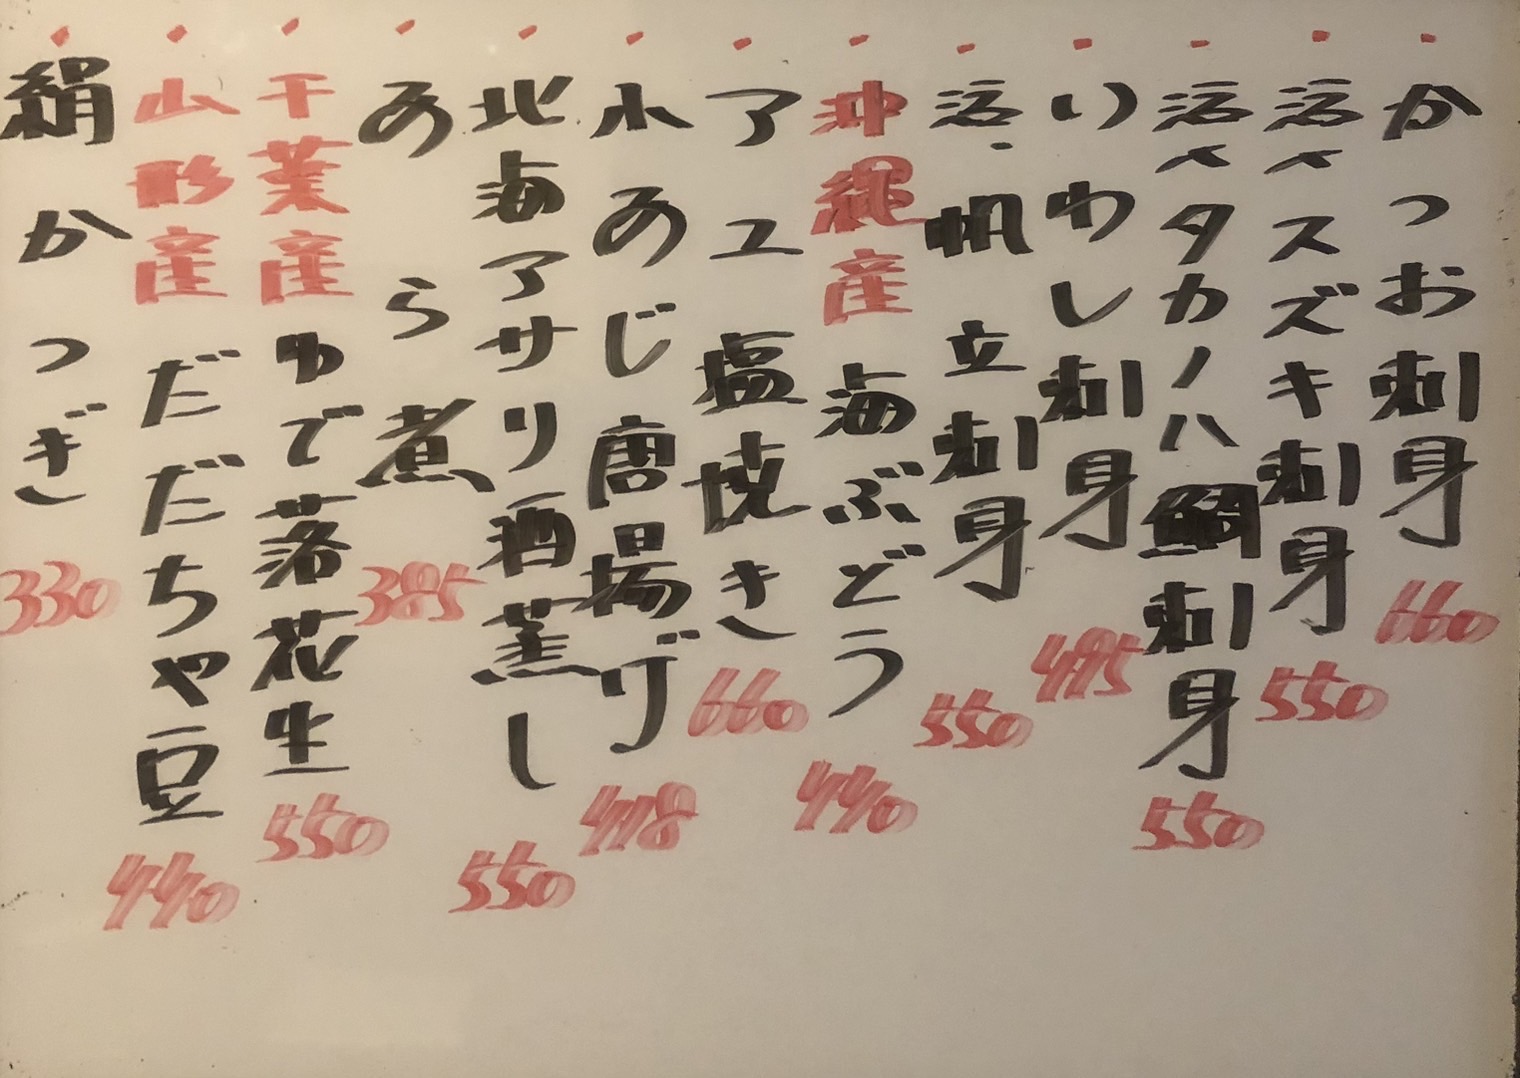 かつお刺身 660
活〆スズキ刺身 550
活〆タカノハ鯛刺身 550
いわし刺身 495
活・帆立刺身 550
沖縄産海ぶどう 440
アユ塩焼き 660
小あじ唐揚げ 418
北海アサリ酒蒸し 550
あら煮 385
千葉産ゆで落花生 550
山形産だだちゃ豆 440
絹かつぎ 330